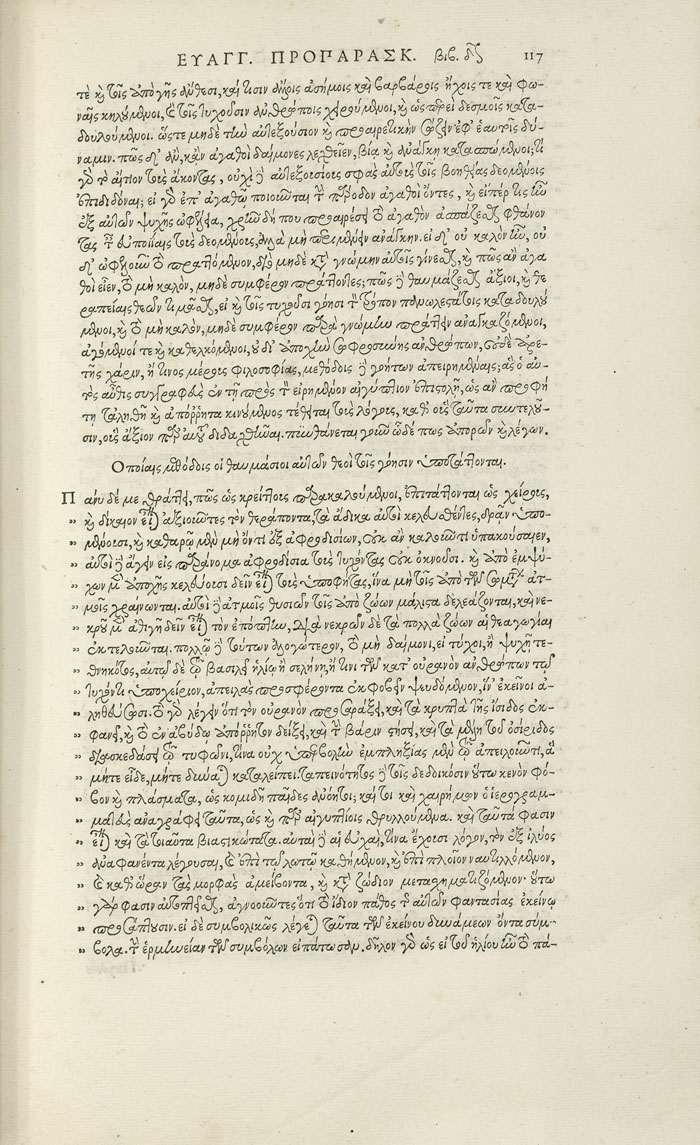 ΕΥΑΓΓ. ΠΡΟΠΑΡΑΣΚ. βιβ. 117
τε καὶ τῆς ἀπογῆς ἀύθεσι, καί τισιν ἀσήμοις καὶ βαρβάροις ἤχοις τε καὶ φω-
ναῖς κηλούμενοι, καὶ τοῖς τυχοῦσιν ἀνθρώποις χειρούμενοι, καὶ ὡσπερεὶ δεσμοῖς κατα-
δουλούμενοι. ὥστε μηδὲ τὴν αὐτεξούσιον καὶ προαιρετικὴν σώζειν ἐφ' ἑαυτοῖς δύ-
ναμιν. πῶς δ' ἂν, κἂν ἀγαθοὶ δαίμονες λεχθεῖεν, βίᾳ καὶ ἀνάγκῃ κατασπώμενοι; τί
γὰρ τὸ αἴτιον τοῦ ἄκοντας, οὐχὶ δὲ αὐτεξουσίους σφᾶς αὐτοὺς τοῖς βοηθείας δεομένοις
ἐπιδιδόναι; εἰ γὰρ ἐπ' ἀγαθῷ ποιοιῶται τὴν πρόοδον ἀγαθοὶ ὄντες, καὶ εἴπερ τις ἦν
ἐξ αὐτῶν ψυχῆς ὠφέλεια, χρῆν δήπου προαιρέσει τὸ ἀγαθὸν ἀσπάζεσθαι φθάνον
τας τὴν εὐποιίαν τοὺς δεομένους, ἀλλὰ μὴ περιμένειν ἀνάγκην. εἰ δ' οὐ καλὸν ἦν, οὐ
δ' ὠφελοῦν τὸ πραττόμενον, διὸ μηδὲ κατὰ γνώμην αὐτοῖς γίνεσθαι, καὶ πῶς ἂν ἀγα
θοὶ εἶεν, τὸ μὴ καλὸν, μηδὲ συμφέρον πράττοντες; πῶς δὲ θαυμάζεσθαι ἄξιοι, καὶ θε
ραπείας θεῶν τιμᾶσθαι, εἰ καὶ τοῖς τυχοῦσι γόησι τὸν τρόπον πονωλεστάτοις καταδουλού
μενοι, καὶ τὸ μὴ καλὸν, μηδὲ συμφέρον παρὰ γνώμην πράττειν ἀναγκαζόμενοι,
ἀγόμενοί τε καὶ καθελκόμενοι, οὐ δι' ἀποδοχὴν σωφροσύνης ἀνθρώπων, οὐδὲ ἀρε-
τῆς χάριν, ἤ τινος μέρους φιλοσοφίας, μεθόδοις δὲ γοήτων ἀπειρημέναις; ἃς ὁ αὐ-
τὸς αὖθις συγγραφεὺς ἐν τῇ πρὸς τὸν εἰρημένον αἰγύπτιον ἐπιστολῇ, ὡς ἂν προφή
τῃ τἀληθῆ καὶ ἀπόῤῥητα κινούμενος τέθειται τοῖς λόγοις, καθ' οὓς ταῦτα συντελοῦ-
σιν, οὓς ἄξιον παρ' αὐτοῦ διδαχθῆναι. πυνθάνεται γοῦν ὧδέ πως ἀπορῶν καὶ λέγων.
Οποίαις μεθόδοις οἱ θαυμάσιοι αὐτῶν θεοὶ τοῖς γόησιν ὑποτάττονται.
Πάνυ δέ με θράττει, πῶς ὡς κρείττους παρακαλούμενοι, ἐπιτάττονται ὡς χείρους,
„ καὶ δίκαιον εἶναι ἀξιοῦντες τὸν θεράποντα, τὰ ἄδικα αὐτοὶ κελευσθέντες, δρᾶν ὑπο-
„ μένουσι, καὶ καθαρῷ μὲν μὴ ὄντι ἐξ ἀφροδισίων, οὐκ ἂν καλοῦντι ὑπακούσαιεν,
„ αὐτοὶ δὲ ἄγειν εἰς παράνομα ἀφροδίσια τοὺς τυχόντας οὐκ ὀκνοῦσι. καὶ ἀπὸ ἐμψύ-
„ χων μὲν ἀποχῆς κελεύουσι δεῖν εἶναι τοὺς ὑποφήτας, ἵνα μὴ τοῖς ἀπὸ τῶν σωμάτων ἀτ-
„ μοῖς χραίνωνται. αὐτοὶ δὲ ἀτμοῖς θυσιῶν τοῖς ἀπὸ ζώων μάλιστα δελεάζονται, καὶ νε-
„ κροῦ μὲν ἀθιγῆ δεῖν εἶναι τὸν ἐπόπτην, διὰ νεκρῶν δὲ τὰ πολλὰ ζώων αἱ θεαγωγίαι
„ ἐκτελοῦνται. πολλῷ δὲ τούτων ἀλογώτερον, τὸ μὴ δαίμονι, εἰ τύχοι, ἢ ψυχῇ τε-
„ θνηκότος, αὐτῷ δὲ τῷ βασιλεῖ ἡλίῳ ἢ σελήνῃ, ἤ τινι τῶν κατ' οὐρανὸν ἄνθρωπον τῷ
„ τυχόντι ὑποχείριον, ἀπειλὰς προσφέροντα ἐκφοβεῖν ψευδόμενον, ἵν' ἐκεῖνοι ἀ-
„ ληθεύσωσι. τὸ γὰρ λέγειν ὅτι τὸν οὐρανὸν προσαράξει, καὶ τὰ κρυπτὰ τῆς ἴσιδος ἐκ-
„ φανεῖ, καὶ τὸ ἐν ἀβύδῳ ἀπόῤῥητον δείξει, καὶ τὴν βάριν στήσει, καὶ τὰ μέλη τοῦ ὀσίριδος
„ διασκεδάσει τῷ τυφῶνι, τίνα οὐχ ὑπερβολὴν ἐμπληξίας μὲν τῷ ἀπειλοῦντι, ἃ
„ μήτε εἶδε, μήτε δύναται καταλείπει. ταπεινότητος δὲ τοῖς δεδοικόσιν οὕτω κενὸν φό-
„ βον καὶ πλάσματα, ὡς κομιδῆ παῖδες ἀνόητοι; καί τοι καὶ χαιρήμων ὁ ἱερογραμ-
„ ματεὺς ἀναγράφει ταῦτα, ὡς καὶ παρ' αἰγυπτίοις θρυλλούμενα. καὶ ταῦτά φασιν
„ εἶναι καὶ τὰ τοιαῦτα βιαστικώτατα. αὐταὶ δὲ αἱ εὐχαὶ, τίνα ἔχουσι λόγον, τὸν ἐξ ἰλύος
„ ἀναφανέντα λέγουσαι, καὶ ἐπὶ τῷ λωτῷ καθήμενον, καὶ ἐπὶ πλοῖον ναυτιλλόμενον,
„ καὶ καθ' ὥραν τὰς μορφὰς ἀμείβοντα, καὶ κατὰ ζώδιον μετασχηματιζόμενον· οὕτω
„ γάρ φασιν αὐτοπτεῖσθαι, ἀγνοοῦντες ὅτι τὸ ἴδιον πάθος τῆς αὐτῶν φαντασίας ἐκείνῳ
„ προσάπτουσιν. εἰ δὲ συμβολικῶς λέγεται ταῦτα τῶν ἐκείνου δυνάμεων ὄντα σύμ-
„ βολα. τὴν ἑρμηνείαν τῶν συμβόλων εἰπάτωσαν. δῆλον γὰρ ὡς εἰ τοῦ ἡλίου ἦν τὸ πά-